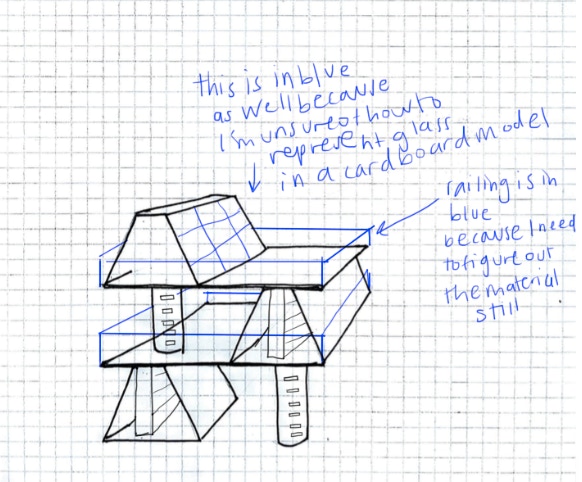 this is in blue
as well because
I'm unsure of how to
represent glass
in a cardboard model
railing is in
blue
because I need
to figure out
the material
still